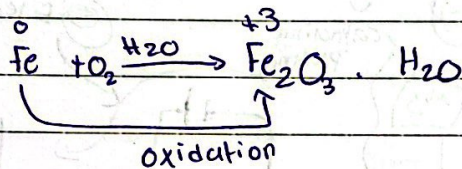 0 +3
Fe + O₂ H₂O → Fe₂O₃ . H₂O
oxidation